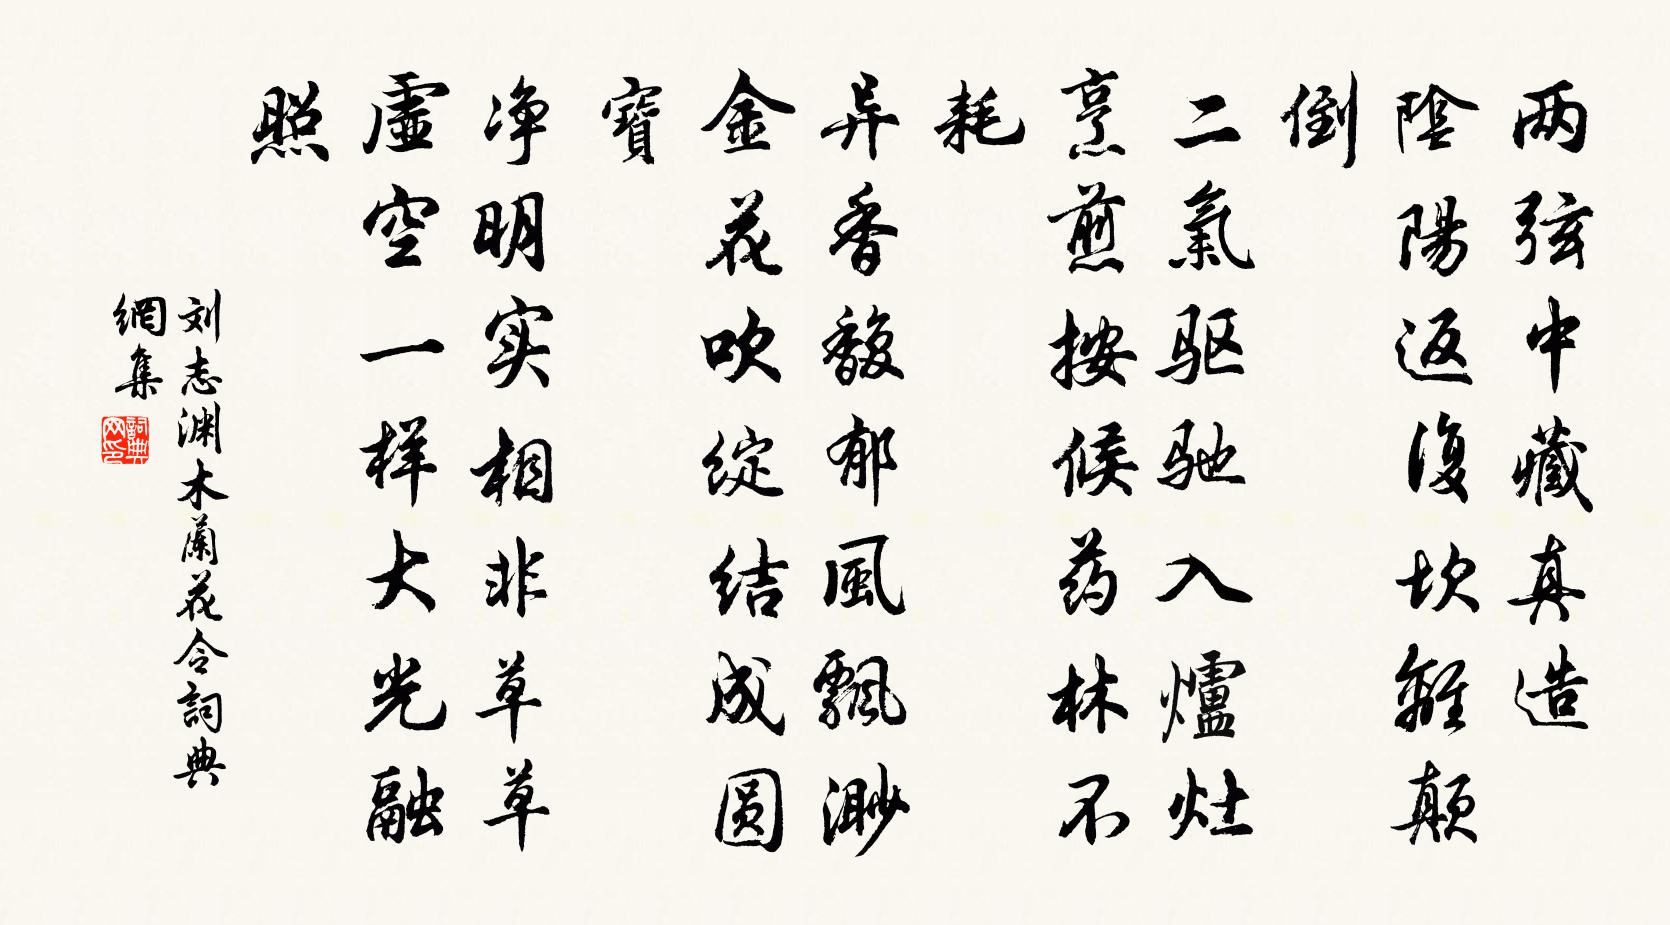 两弦中藏真造
陰陽返復坎離颠
倒
二氣驱驰入爐灶
烹煎按候药林不
耗
异香馥郁風飄渺
金花吹绽结成圆
寶
净明实相非草草
虚空一样大光融
照
刘志渊木蘭花令詞典
網集
詞典网印